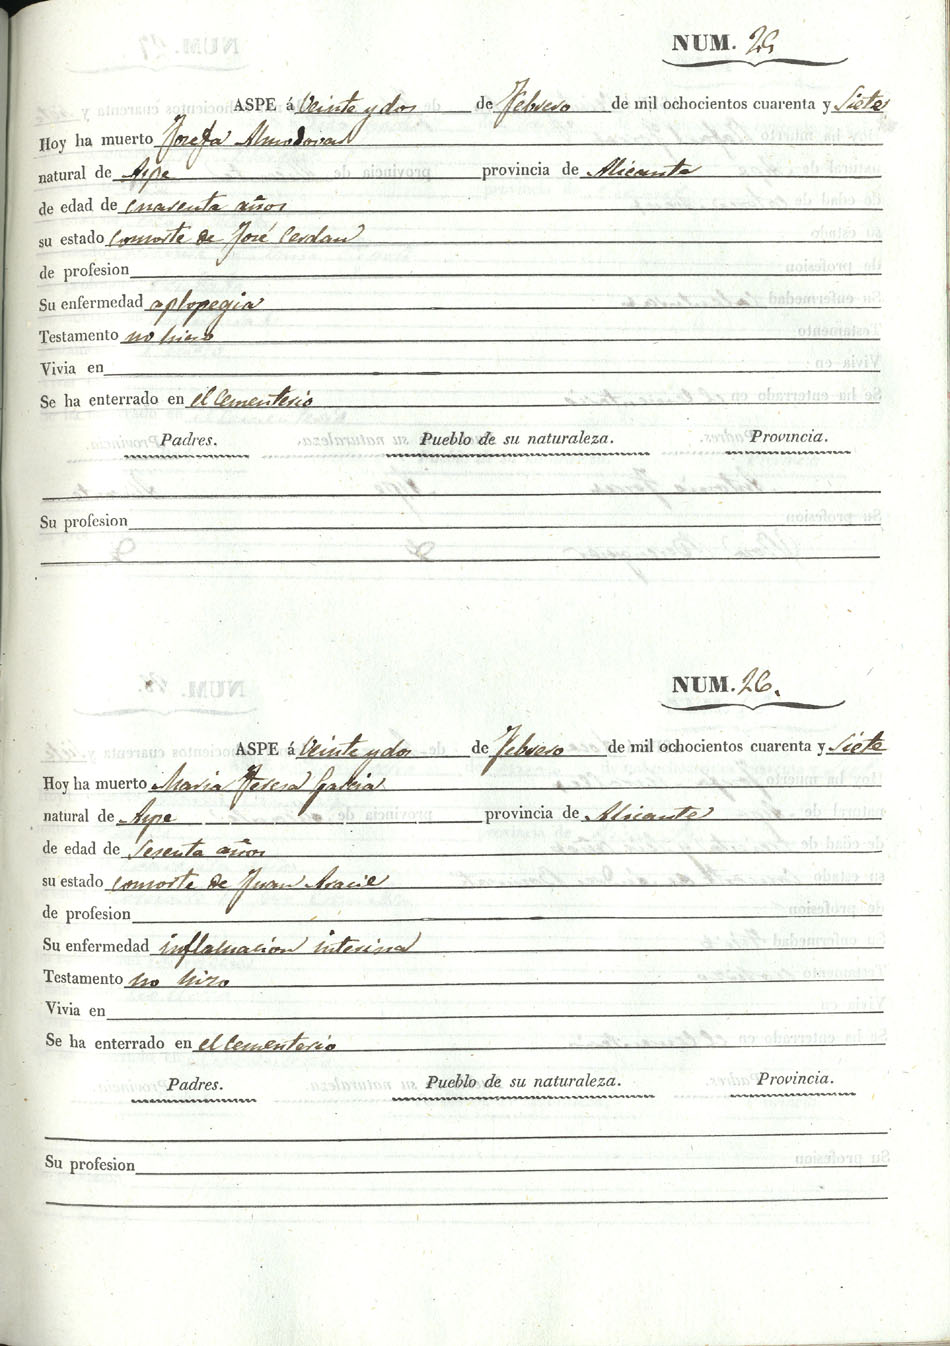 NUM. 25
ASPE á Veinte y dos de Febrero de mil ochocientos cuarenta y Siete
Hoy ha muerto Josefa Almodovar
natural de Aspe provincia de Alicante
de edad de cuarenta años
su estado consorte de José Cerdan
de profesion
Su enfermedad aplopegia
Testamento no hizo
Vivia en
Se ha enterrado en el Cementerio
Padres. Pueblo de su naturaleza. Provincia.
Su profesion
NUM. 26.
ASPE á Veinte y dos de Febrero de mil ochocientos cuarenta y Siete
Hoy ha muerto Maria Teresa Garcia
natural de Aspe provincia de Alicante
de edad de Sesenta años
su estado consorte de Juan Aracil
de profesion
Su enfermedad inflamacion interina
Testamento no hizo
Vivia en
Se ha enterrado en el Cementerio
Padres. Pueblo de su naturaleza. Provincia.
Su profesion